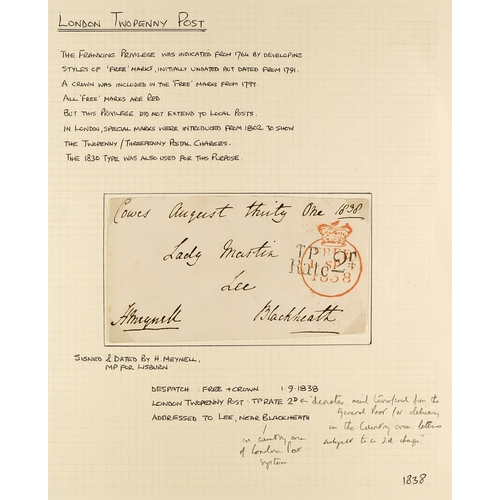 LONDON TWOPENNY POST
THE FRANKING PRIVILEGE WAS INDICATED FROM 1764 BY DEVELOPING
STYLES OF 'FREE' MARKS, INITIALLY UNDATED BUT DATED FROM 1791.
A CROWN WAS INCLUDED IN THE 'FREE' MARKS FROM 1799.
ALL 'FREE' MARKS ARE RED.
BUT THIS PRIVILEGE DID NOT EXTEND TO LOCAL POSTS.
IN LONDON, SPECIAL MARKS WERE INTRODUCED FROM 1802 TO SHOW
THE TWOPENNY/THREEPENNY POSTAL CHARGES.
THE 1830 TYPE WAS ALSO USED FOR THIS PURPOSE.
Cowes August thirty One 1838
Lady Martin
Lee
HMeynell Blackheath
TP
Rate 2D
FREE
1 SP
1838
SIGNED & DATED BY H. MEYNELL,
MP FOR LISBURN
DESPATCH : FREE + CROWN 1.9.1838
LONDON TWOPENNY POST : TP RATE 2D "denotes mail transferred from the
General Post for delivery
in the Country area letters
subject to a 2d charge"
ADDRESSED TO LEE, NEAR BLACKHEATH
in country area
of London Post
system
1838